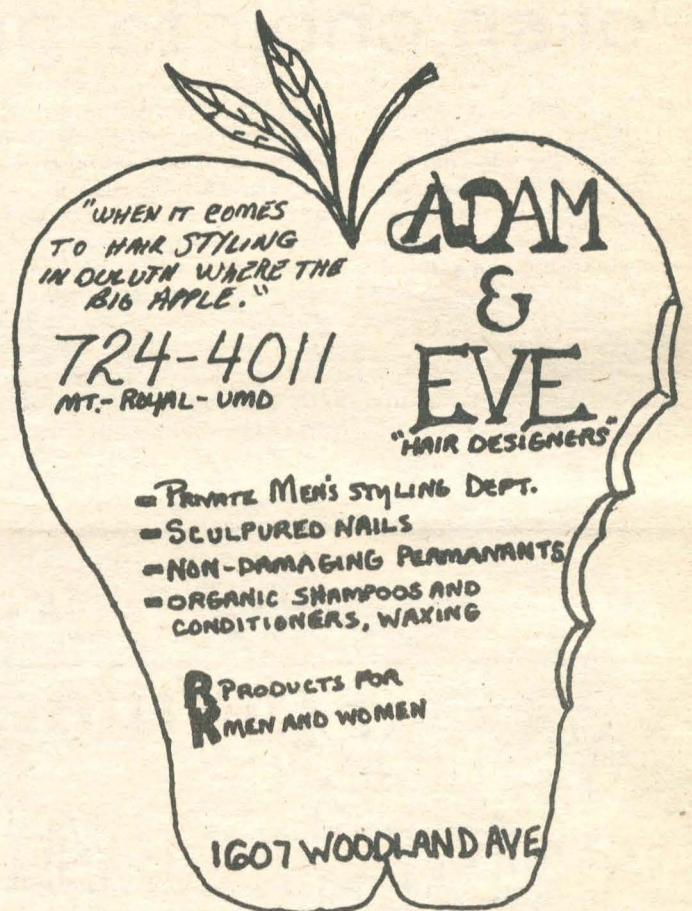 "WHEN IT COMES
TO HAIR STYLING
IN DULUTH WHERE THE
BIG APPLE."
724-4011
MT.- ROYAL - UMD
ADAM
&
EVE
"HAIR DESIGNERS"
- PRIVATE MEN'S STYLING DEPT.
- SCULPURED NAILS
- NON-DAMAGING PERMANANTS
- ORGANIC SHAMPOOS AND
CONDITIONERS, WAXING
R PRODUCTS FOR
K MEN AND WOMEN
1607 WOODLAND AVE